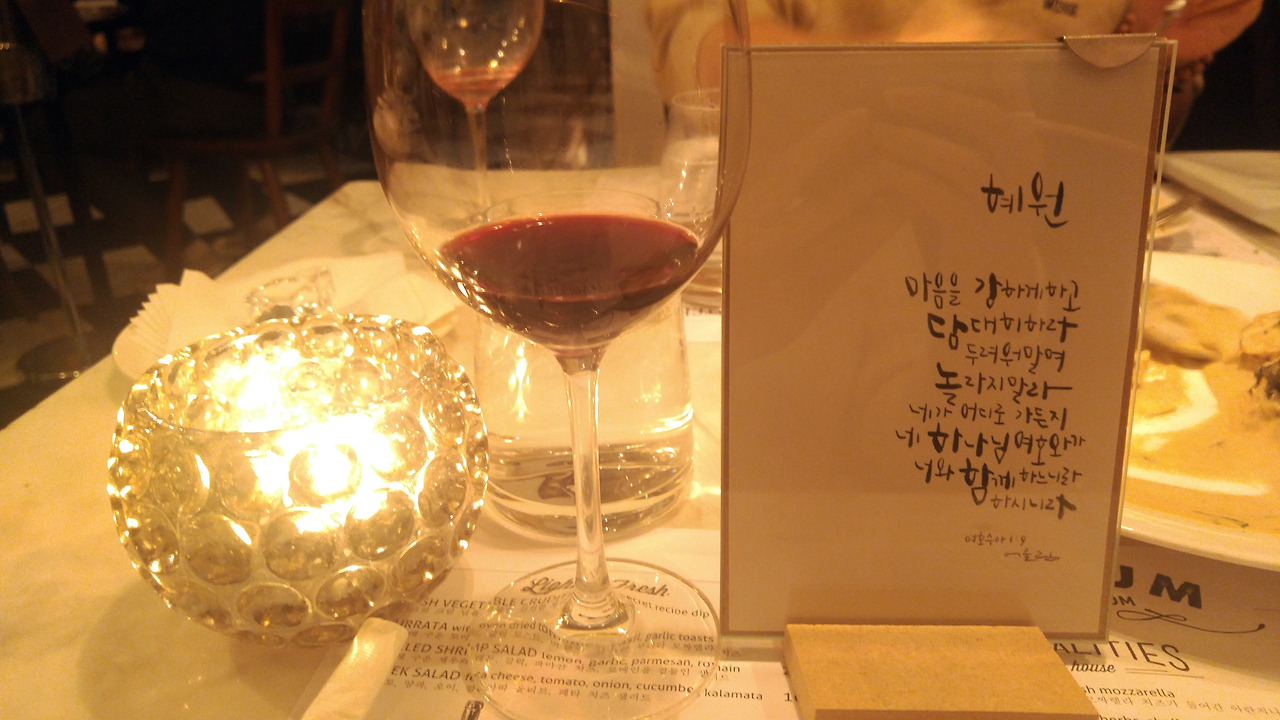 혜원
마음을 강하게하고
담대히하라
두려워말며
놀라지말라
네가 어디로 가든지
네 하나님 여호와가
너와 함께 하느니라
하시니라
여호수아 1:9
Light Fresh
SH VEGETABLE CRUD secret recipe dip
URRATA with oven dried garlic toasts
LED SHRIMP SALAD lemon, garlic, parmesan, romain
EK SALAD feta cheese, tomato, onion, cucumber, kalamata
UM
UM
ALITIES
house
sh mozzarella